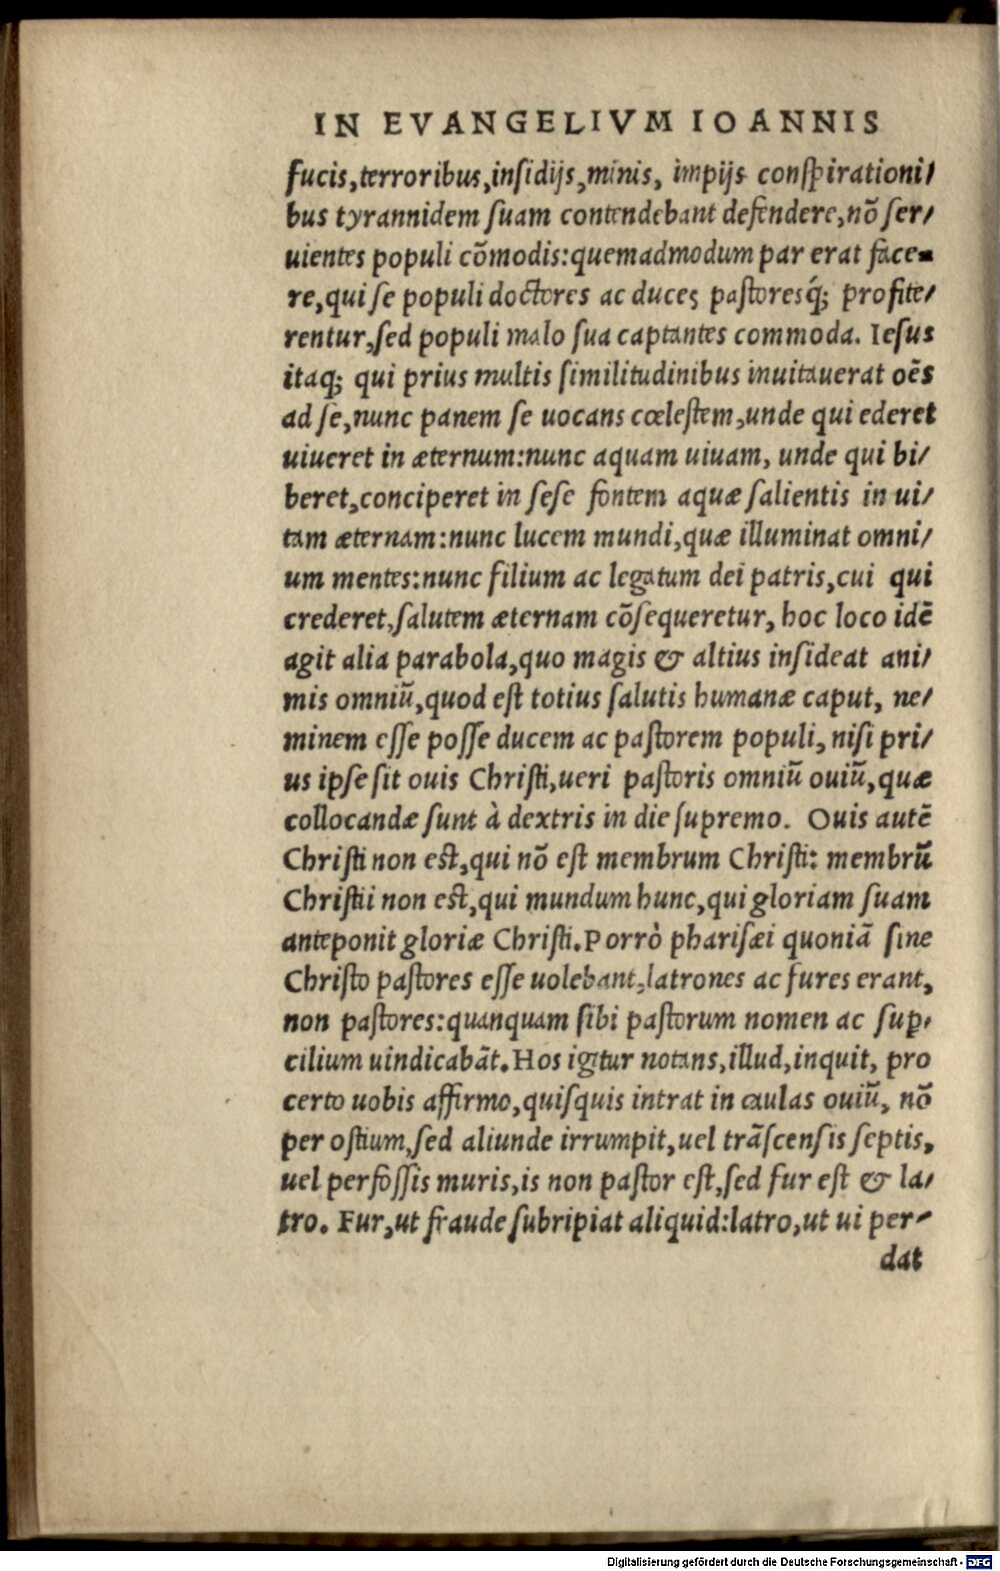 IN EVANGELIVM IOANNIS
fucis,terroribus,insidijs,minis, impijs conspirationi/
bus tyrannidem suam contendebant defendere,nõ ser/
uientes populi cõmodis:quemadmodum par erat face-
re,qui se populi doctores ac duces pastoresq́; profite/
rentur,sed populi malo sua captantes commoda. Iesus
itaq; qui prius multis similitudinibus inuitauerat oẽs
ad se,nunc panem se uocans cœlestem,unde qui ederet
uiueret in æternum:nunc aquam uiuam, unde qui bi/
beret,conciperet in sese fontem aquæ salientis in ui/
tam æternam:nunc lucem mundi,quæ illuminat omni/
um mentes:nunc filium ac legatum dei patris,cui qui
crederet,salutem æternam cõsequeretur, hoc loco idẽ
agit alia parabola,quo magis & altius insideat ani/
mis omniũ,quod est totius salutis humanæ caput, ne/
minem esse posse ducem ac pastorem populi, nisi pri/
us ipse sit ouis Christi,ueri pastoris omniũ ouiũ,quæ
collocandæ sunt à dextris in die supremo. Ouis autẽ
Christi non est,qui nõ est membrum Christi: membrũ
Christii non est,qui mundum hunc,qui gloriam suam
anteponit gloriæ Christi.Porrò pharisæi quoniã sine
Christo pastores esse uolebant,latrones ac fures erant,
non pastores:quanquam sibi pastorum nomen ac sup̱/
cilium uindicabãt.Hos igitur notans,illud,inquit, pro
certo uobis affirmo,quisquis intrat in caulas ouiũ, nõ
per ostium,sed aliunde irrumpit,uel trãscensis septis,
uel perfossis muris,is non pastor est,sed fur est & la/
tro. Fur,ut fraude subripiat aliquid:latro,ut ui per/
dat
Digitalisierung gefördert durch die Deutsche Forschungsgemeinschaft - DFG